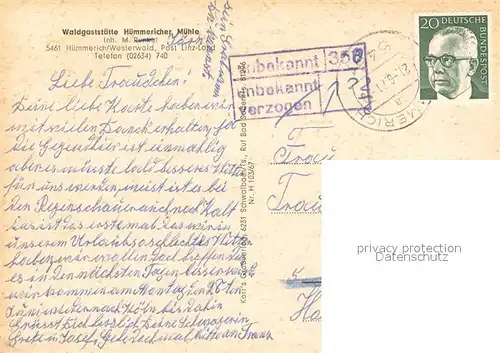 Waldgaststätte Hümmericher Mühle
Inh. M.
5461 Hümmerich/Westerwald, Post Linz-Land
Telefon (02634) 740
Liebe Traudchen!
Deine liebe Karte haben wir
mit vielen Dank erhalten, ja
die Gegend hier ist einmahlig
aber es müsste bald besseres Wetter
für uns werden, meist ist es bei
den Regenschauer auch noch kalt
das ist das erstemal das wir in
unserem Urlaub so schlechtes Wetter
haben, wir wollen doch hoffen das
es in den nächsten Tagen besser wird
wir kommen am Montag den 28ten
Juni wieder nach Köln bis dahin
grüsst Dich herzlich Deine Schwägerin
Grete u Josef,
Karl's Grußverlag, 6231 Schwalbach/Ts., Ruf Bad Soden
Nr. H 103/67
unbekannt 350
unbekannt
verzogen
20 DEUTSCHE
BUNDESPOST
Frau
Traud
5
privacy protection
Datenschutz